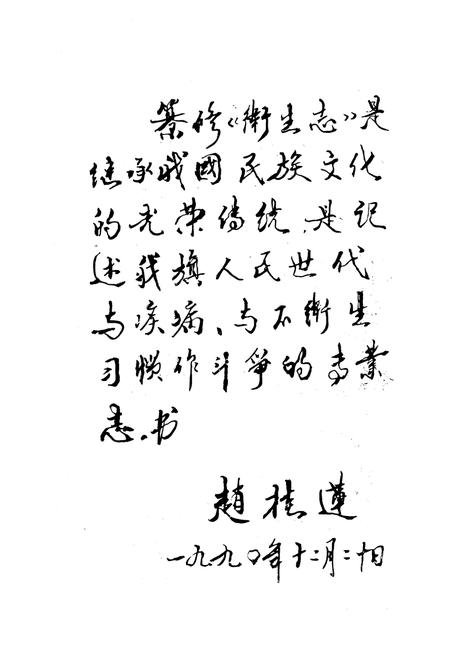 纂修《衛生志》是
继承我國民族文化
的光荣傳统,是记
述我旗人民世代
与疾病、与不衛生
习惯作斗爭的專業
志书
趙桂蓮
一九九〇年十二月二十日